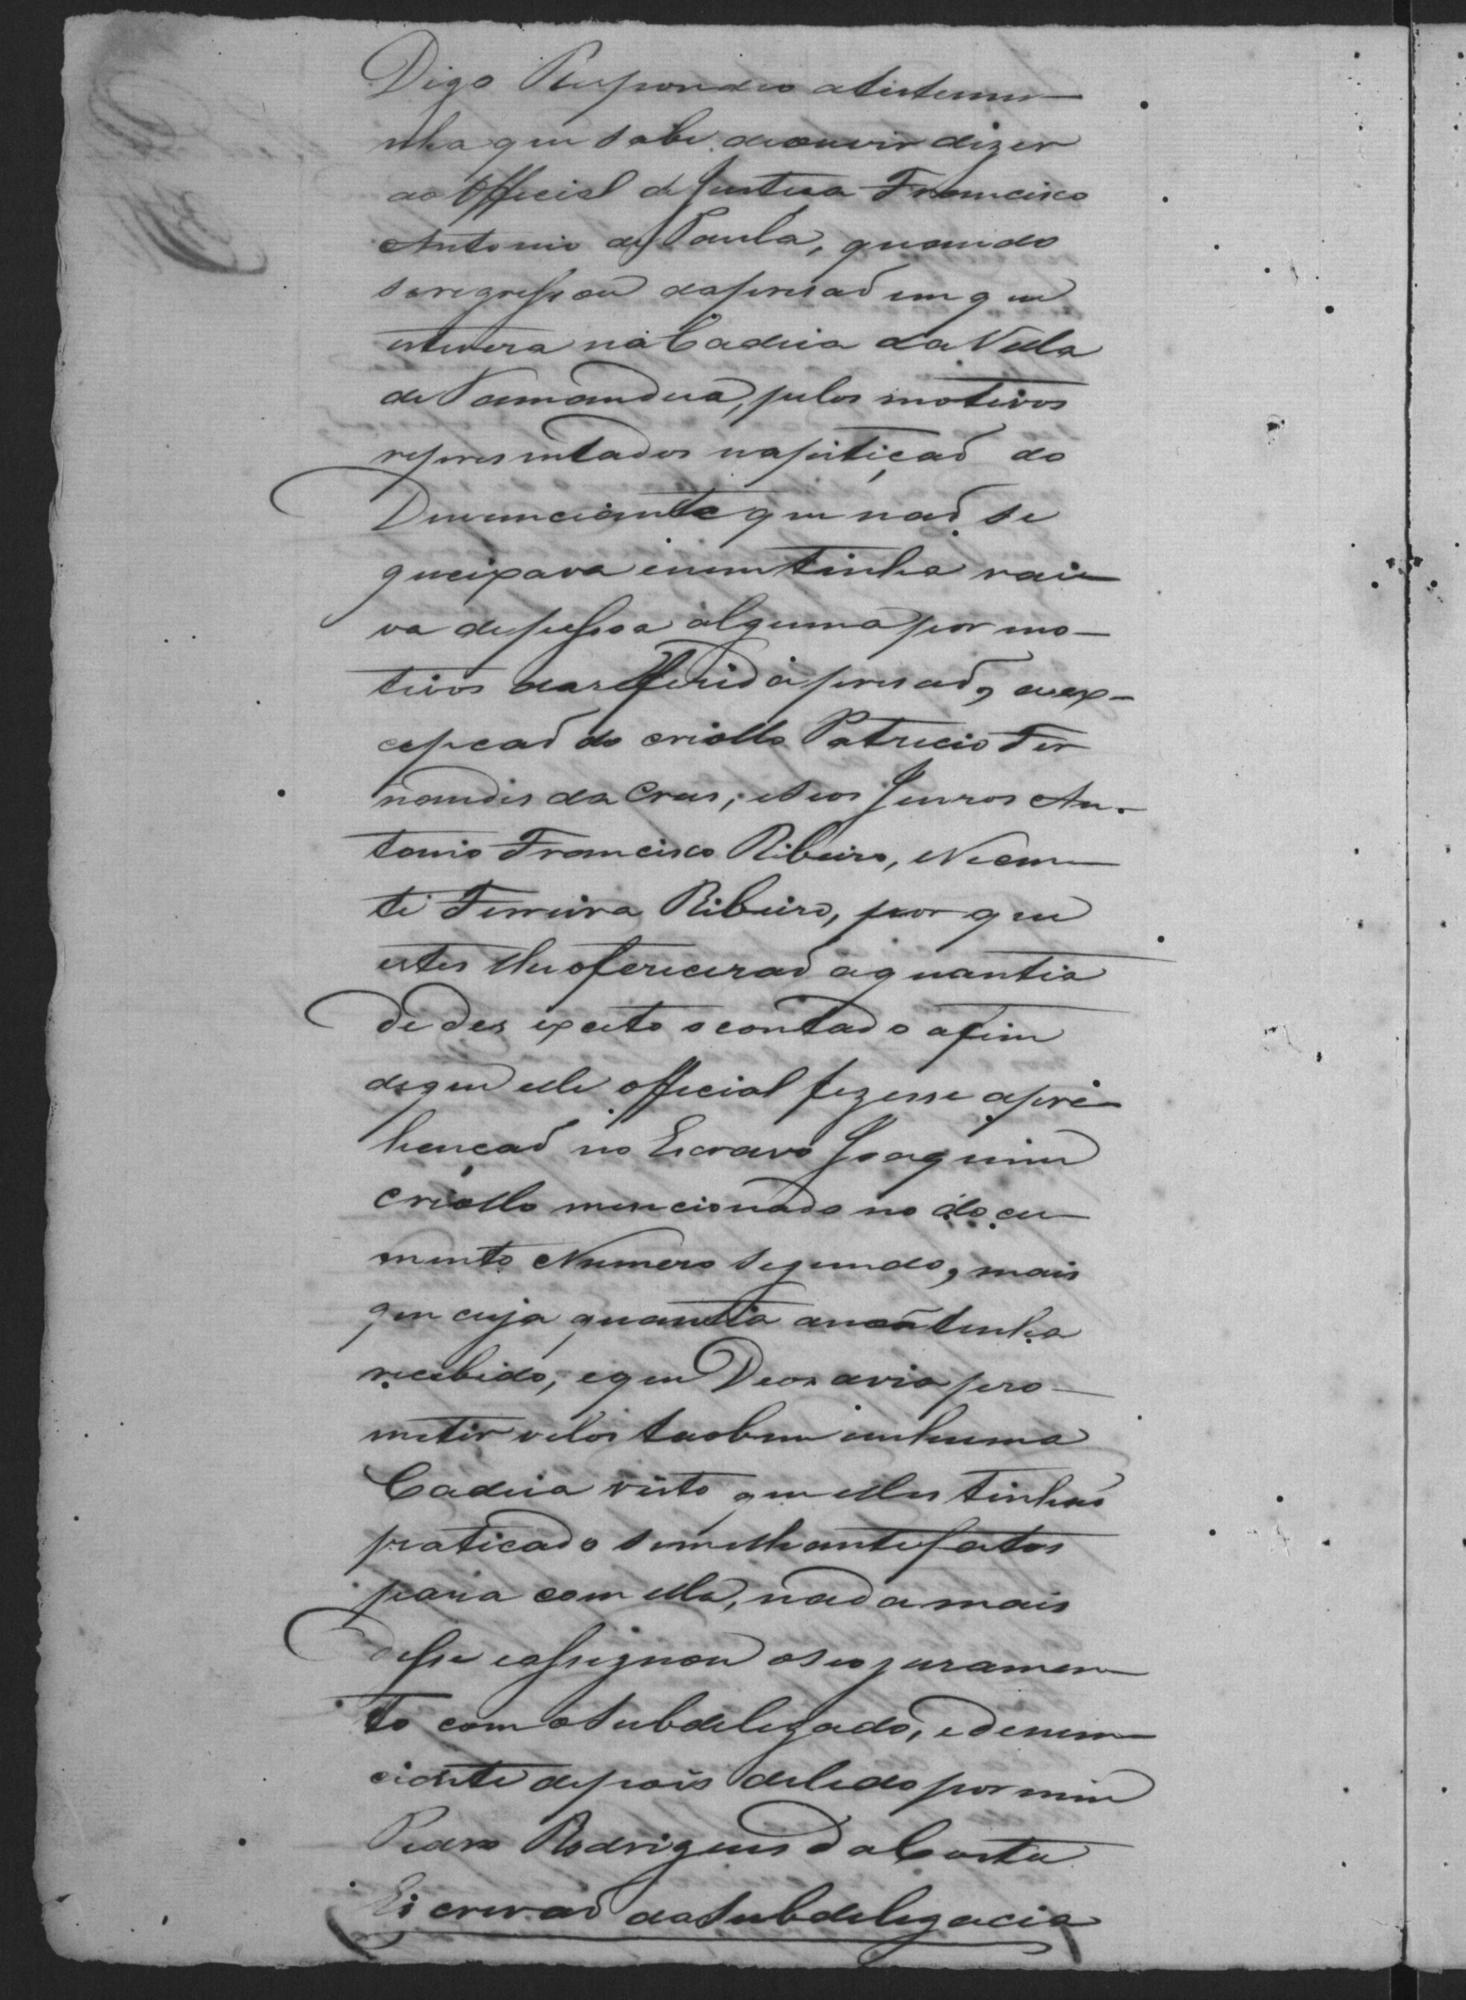 Digo Respondeo atistemu-
nha que sabe de ouvir dizer
ao Official de Justisa Francisco
Antonio de Paula, quando
se regressou daprisaõ em que
estivera na Cadeia da Villa
de Tamanduá, pelos motivos
representados na petiçaõ do
Denunciante que naõ se
queixava enem tinha rai-
va de pessoa alguma por mo-
tivos da refferida prisaõ, a ex-
cepcaõ do criollo Patricio Fer
nandes da Crus; e seos Genros An-
tonio Francisco Ribeiro, e
Ferreira Ribeiro, por que
estes lhe oferecerаõ aquantia
de des e contado afim
de que elle official fizesse apre-
hencaõ no Escravo Joaquim
criollo mencionado no docu-
mento Numero segundo, mais
que cuja quantia a naõ tinha
recebido, e que Deos avia pero-
metir velos taobem em huma
Cadeia visto que elles tinhaõ
praticado semelhante fatos
para com elle, nada mais
disse e assignou o seo juramen-
to com o Subdelegado, e denun-
ciante depois de lido por mim
Pedro Rodrigues da Costa
Escrivaõ da Subdelegacia